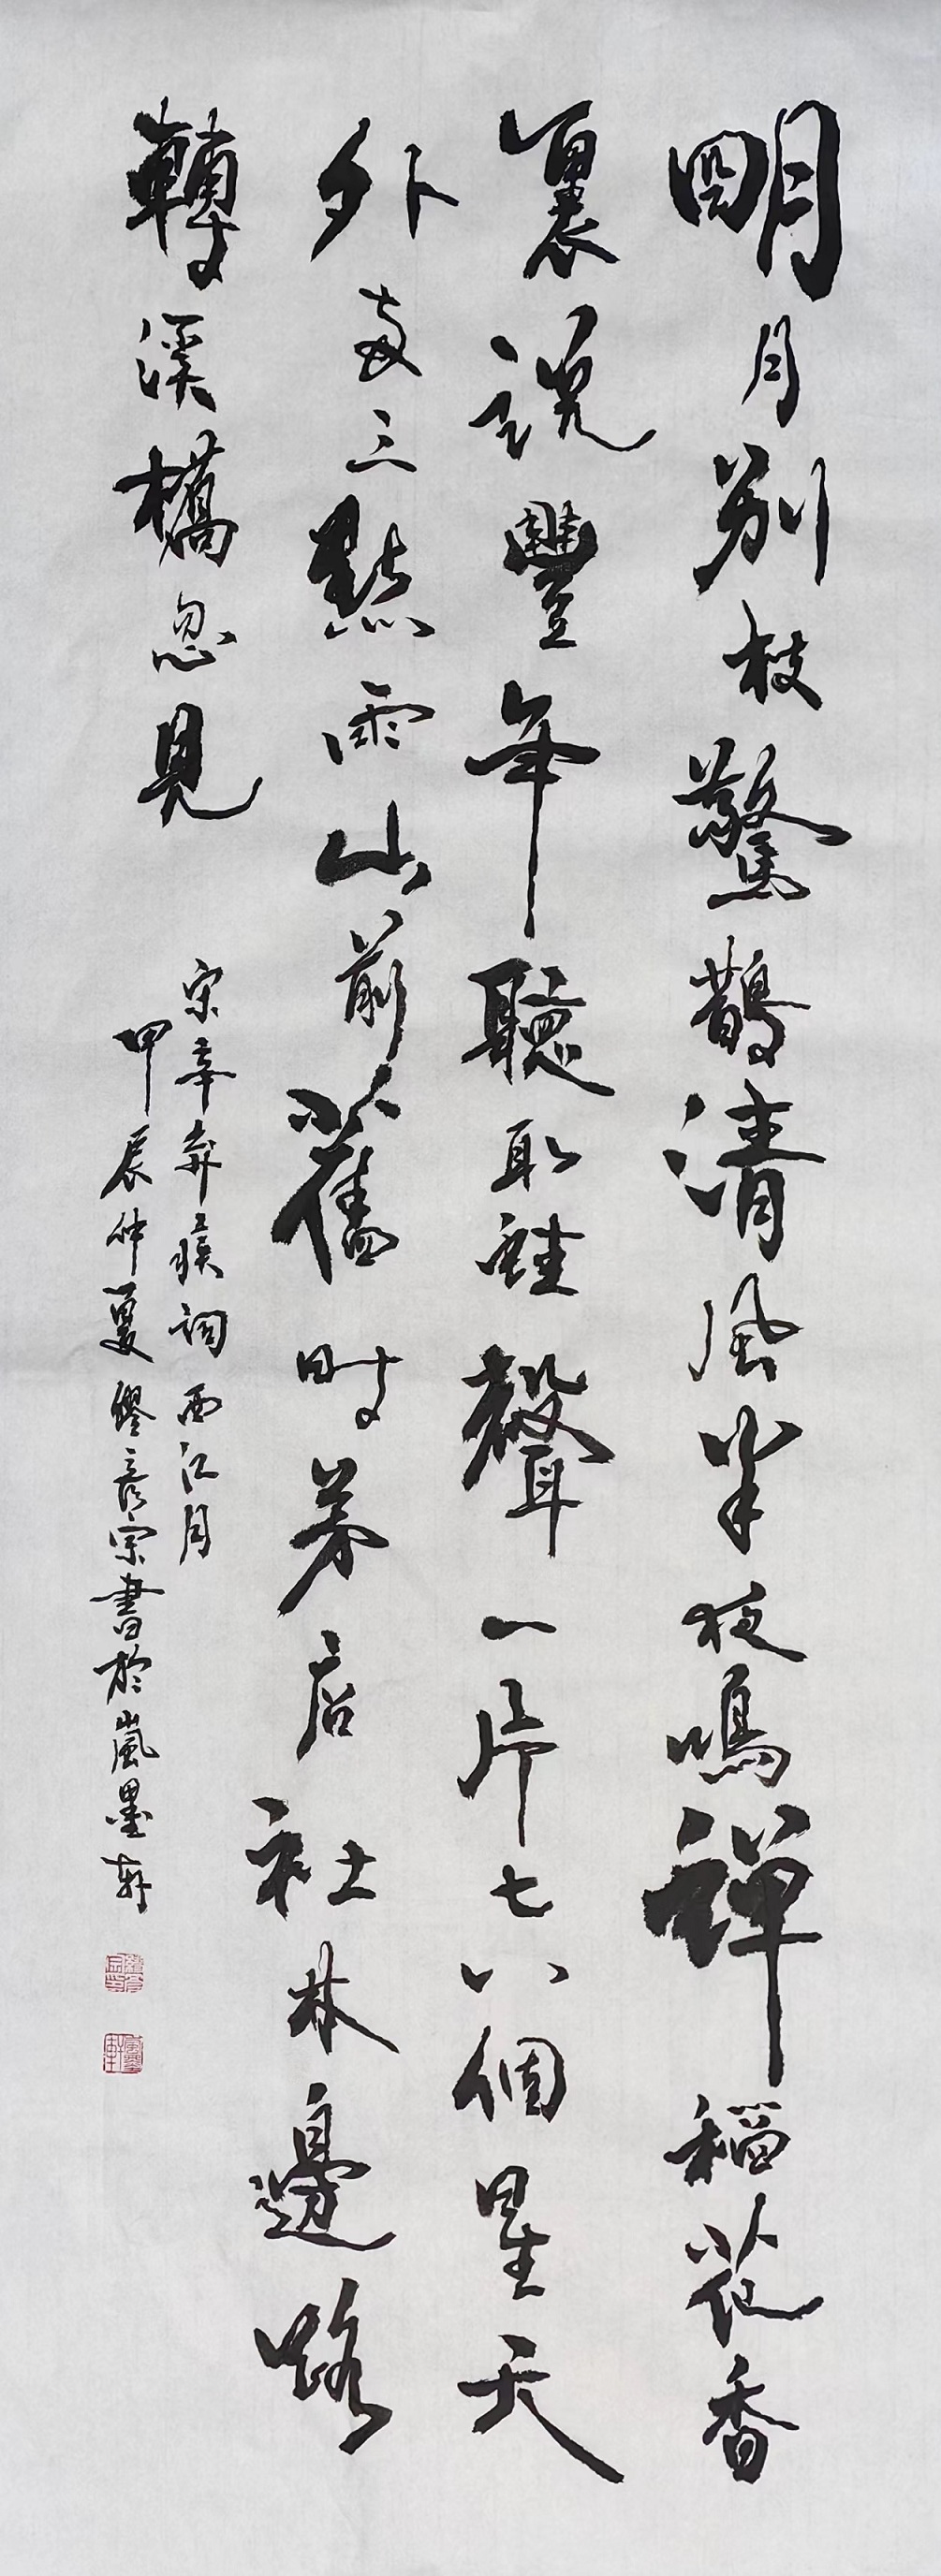 明月别枝驚鵲清風半夜鳴蟬稻花香
裏説豐年聽取蛙聲一片七八個星天
外兩三點雨山前舊時茅店社林邊路
轉溪橋忽見
宋辛弃疾詞西江月
甲辰仲夏繆彦宗書於嵐墨軒